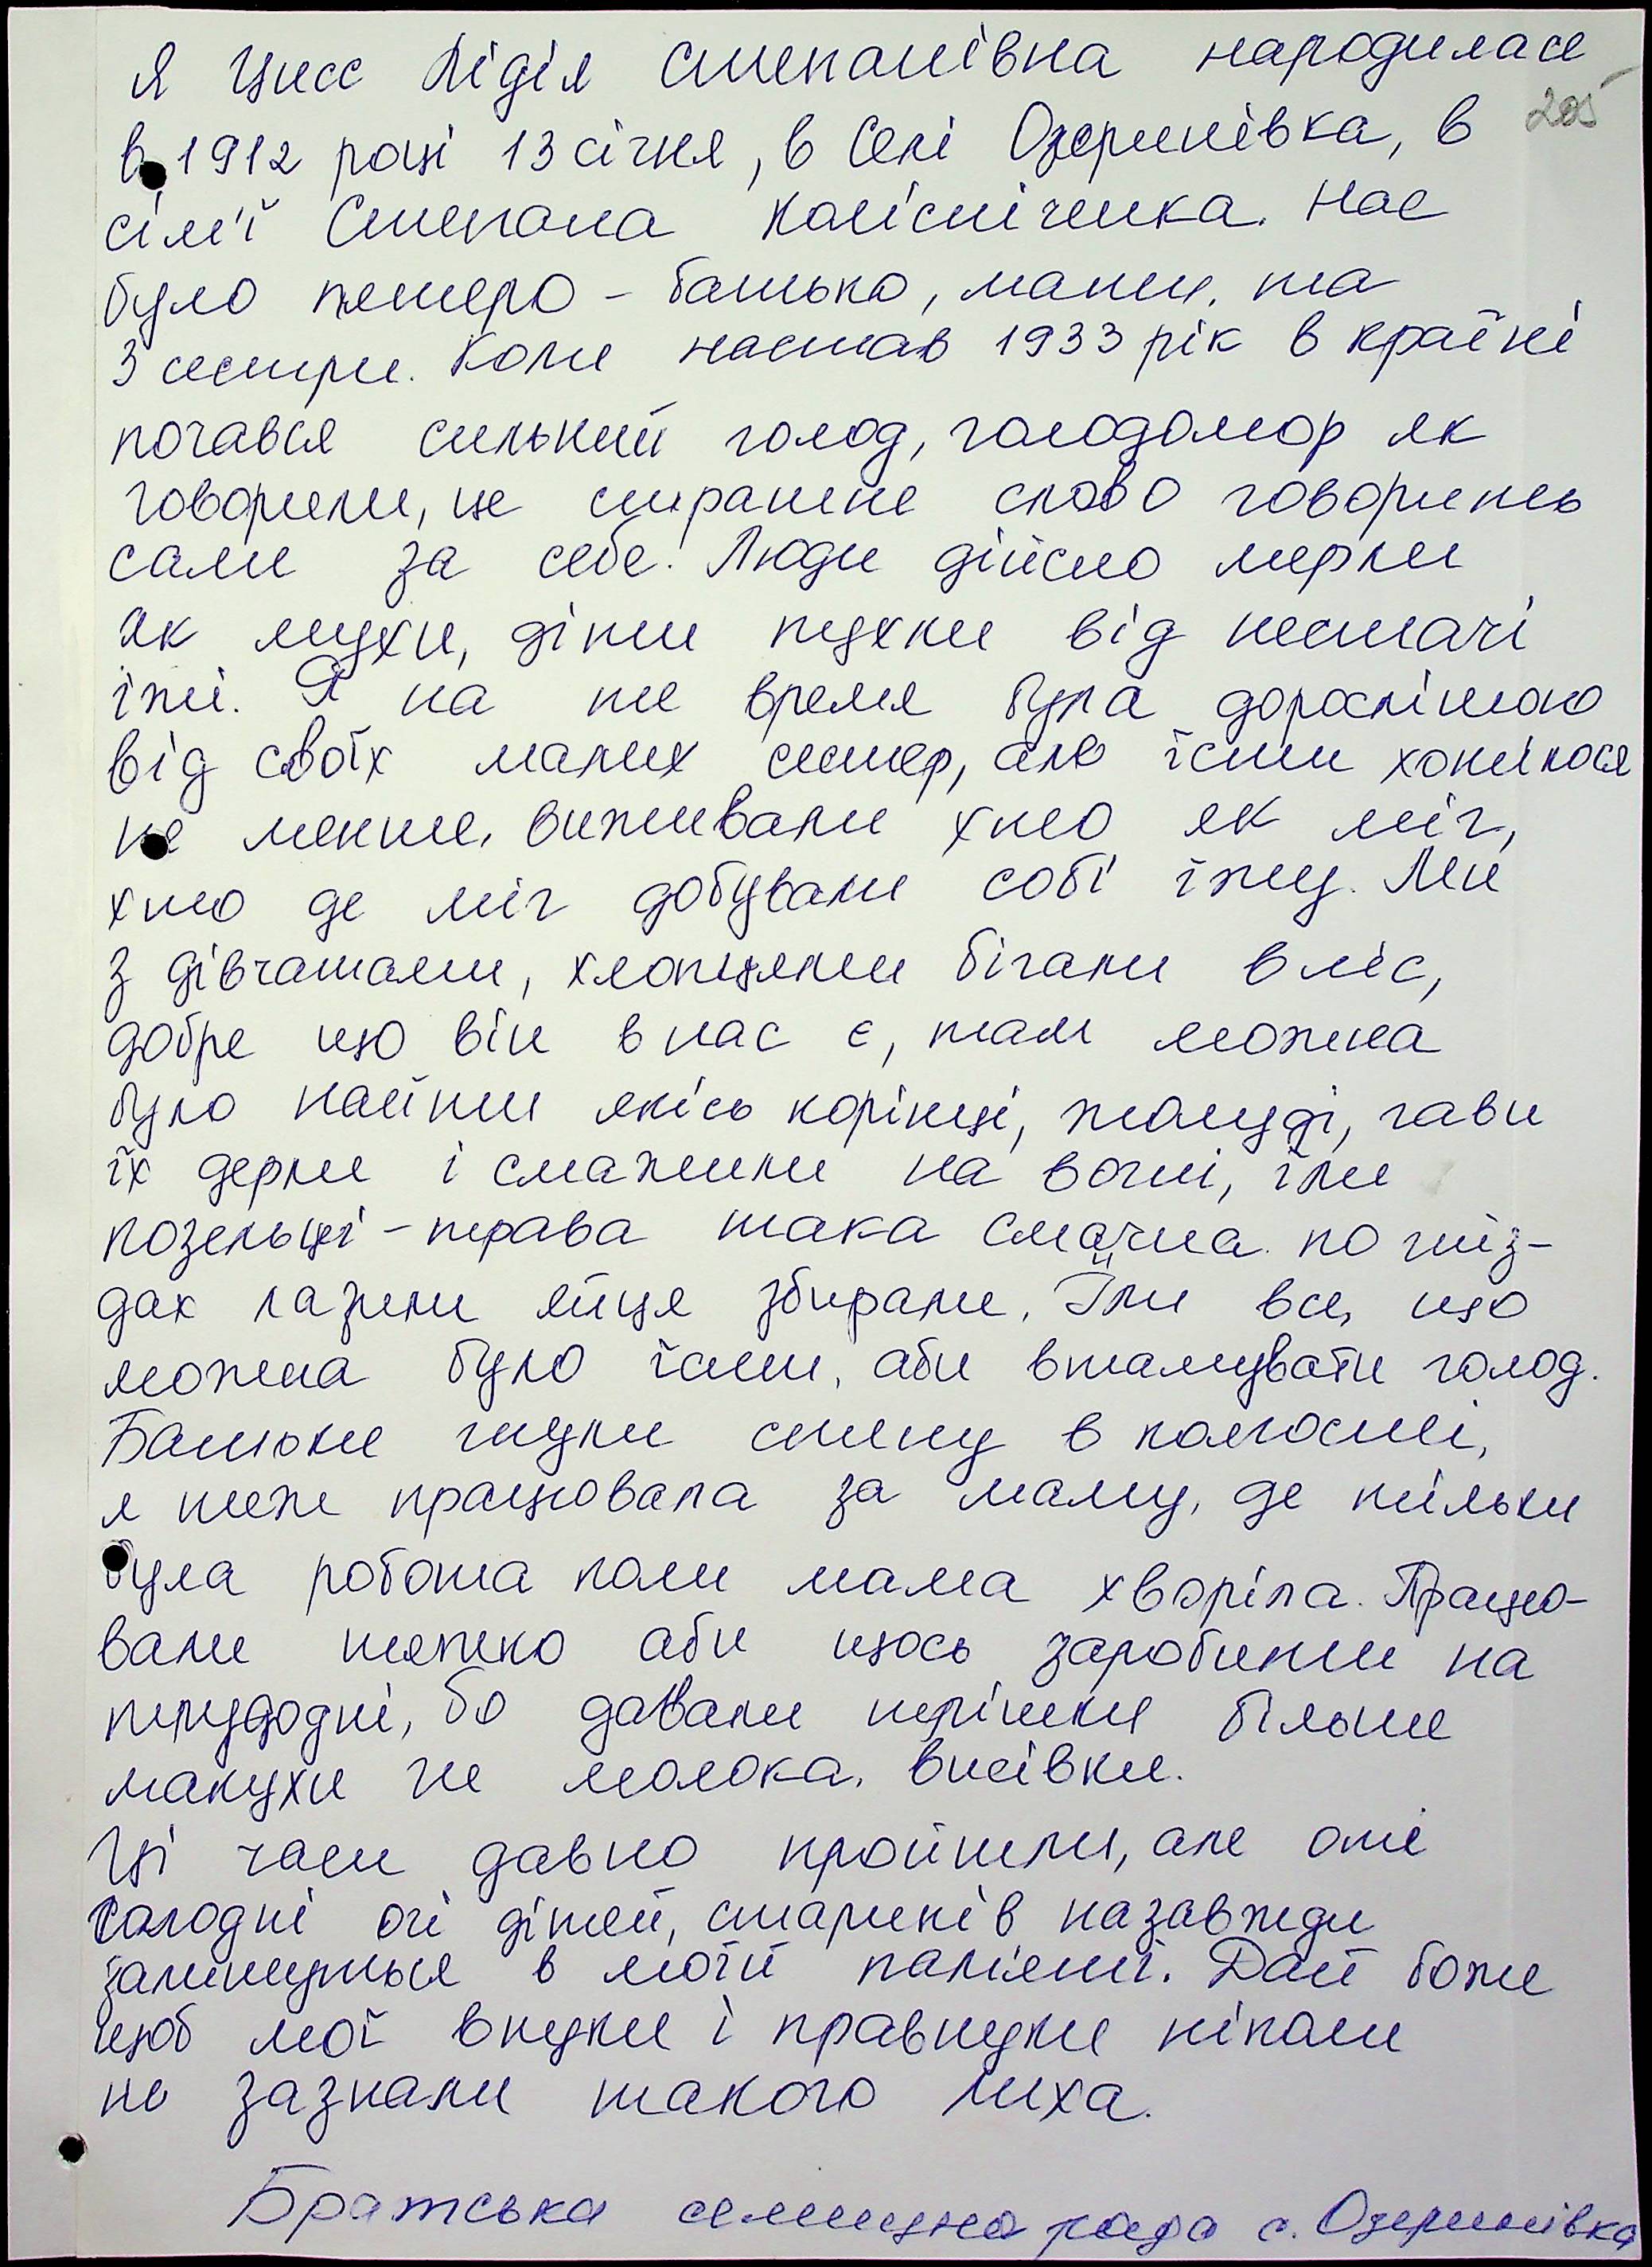 Я Цисс Лідія Степанівна народилася
205
в 1912 році 13 січня, в селі Озеринівка, в
сім'ї Степана Колісніченка. Нас
було пятеро - батько, мати, та
3 сестри. Коли настав 1933 рік в країні
почався сильний голод, голодомор як
говорили, це страшне слово говорить
саме за себе. Люди дійсно мерли
як мухи, діти пухли від нестачі
їжі. Я на те время була дорослішою
від своїх малих сестер, але їсти хотілося
не менше, виживали хто як міг,
хто де міг добували собі їжу. Ми
з дівчатами, хлопцями бігали в ліс,
добре що він в нас є, там можна
було найти якісь корінці, жолуді, гави
їх дерли і смажили на вогні, їли
козельці - трава така смачна. по гніз-
дах лазили яйця збирали. Їли все, що
можна було їсти, аби втамувати голод.
Батьки гнули спину в колгоспі,
я теж працювала за маму, де тільки
була робота коли мама хворіла. Працю-
вали тяжко аби щось заробити на
трудодні, бо давали трішки більше
макухи чи молока, висівки.
Ці часи давно пройшли, але оті
голодні очі дітей, стариків назавжди
залишуться в моїй памʼяті. Дай боже
щоб мої внуки і правнуки ніколи
не зазнали такого лиха.
Братська селищна рада с. Озеринівка